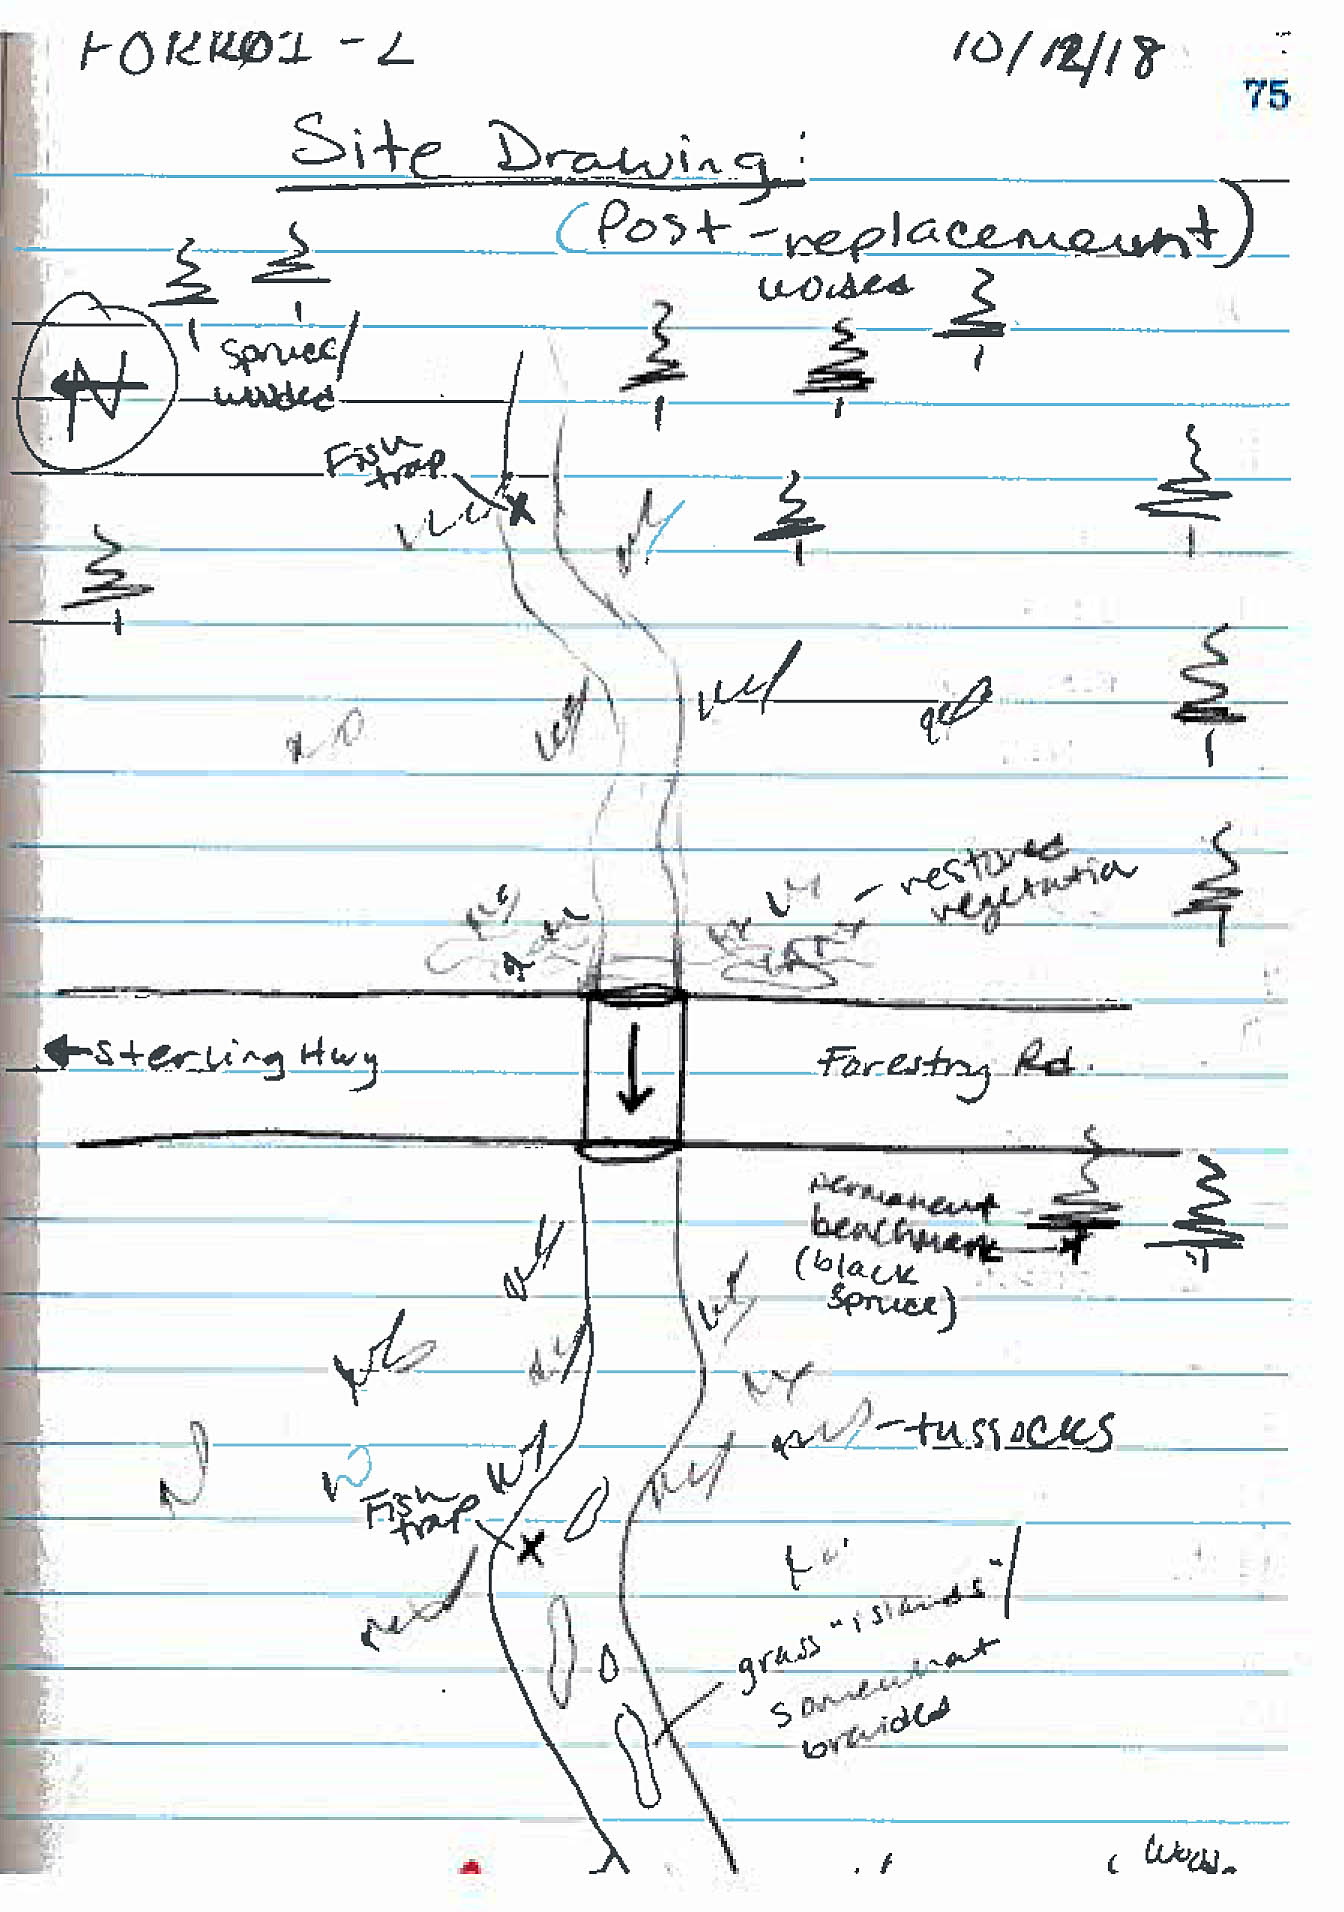 FORR01-2 10/12/18
75
Site Drawing:
(Post-replacement)
wooded
N
spruce/
wooded
Fish
trap
- restored
vegetation
Sterling Hwy
Forestry Rd.
permanent
benchmark
(black
spruce)
-tussocks
Fish
trap
grass "islands"/
somewhat
braided